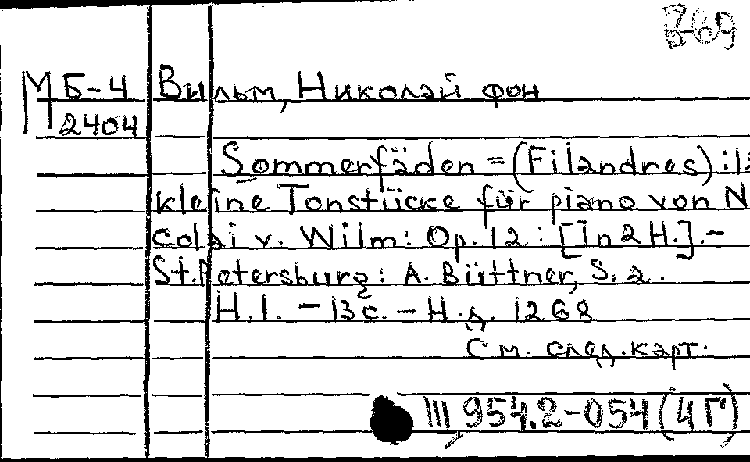 В-69
М Б-4 Вильм, Николай фон
2404
Sommerfäden = (Filandres) : 12
kleine Tonstücke für piano von N
colai v. Wilm : Op. 12 : [In 2 H.]. –
St. Petersburg : A. Büttner, S. a.
H. 1. – 13 с. – Н. д. 1268
См. след. карт.
III 954.2-054 (4Г)